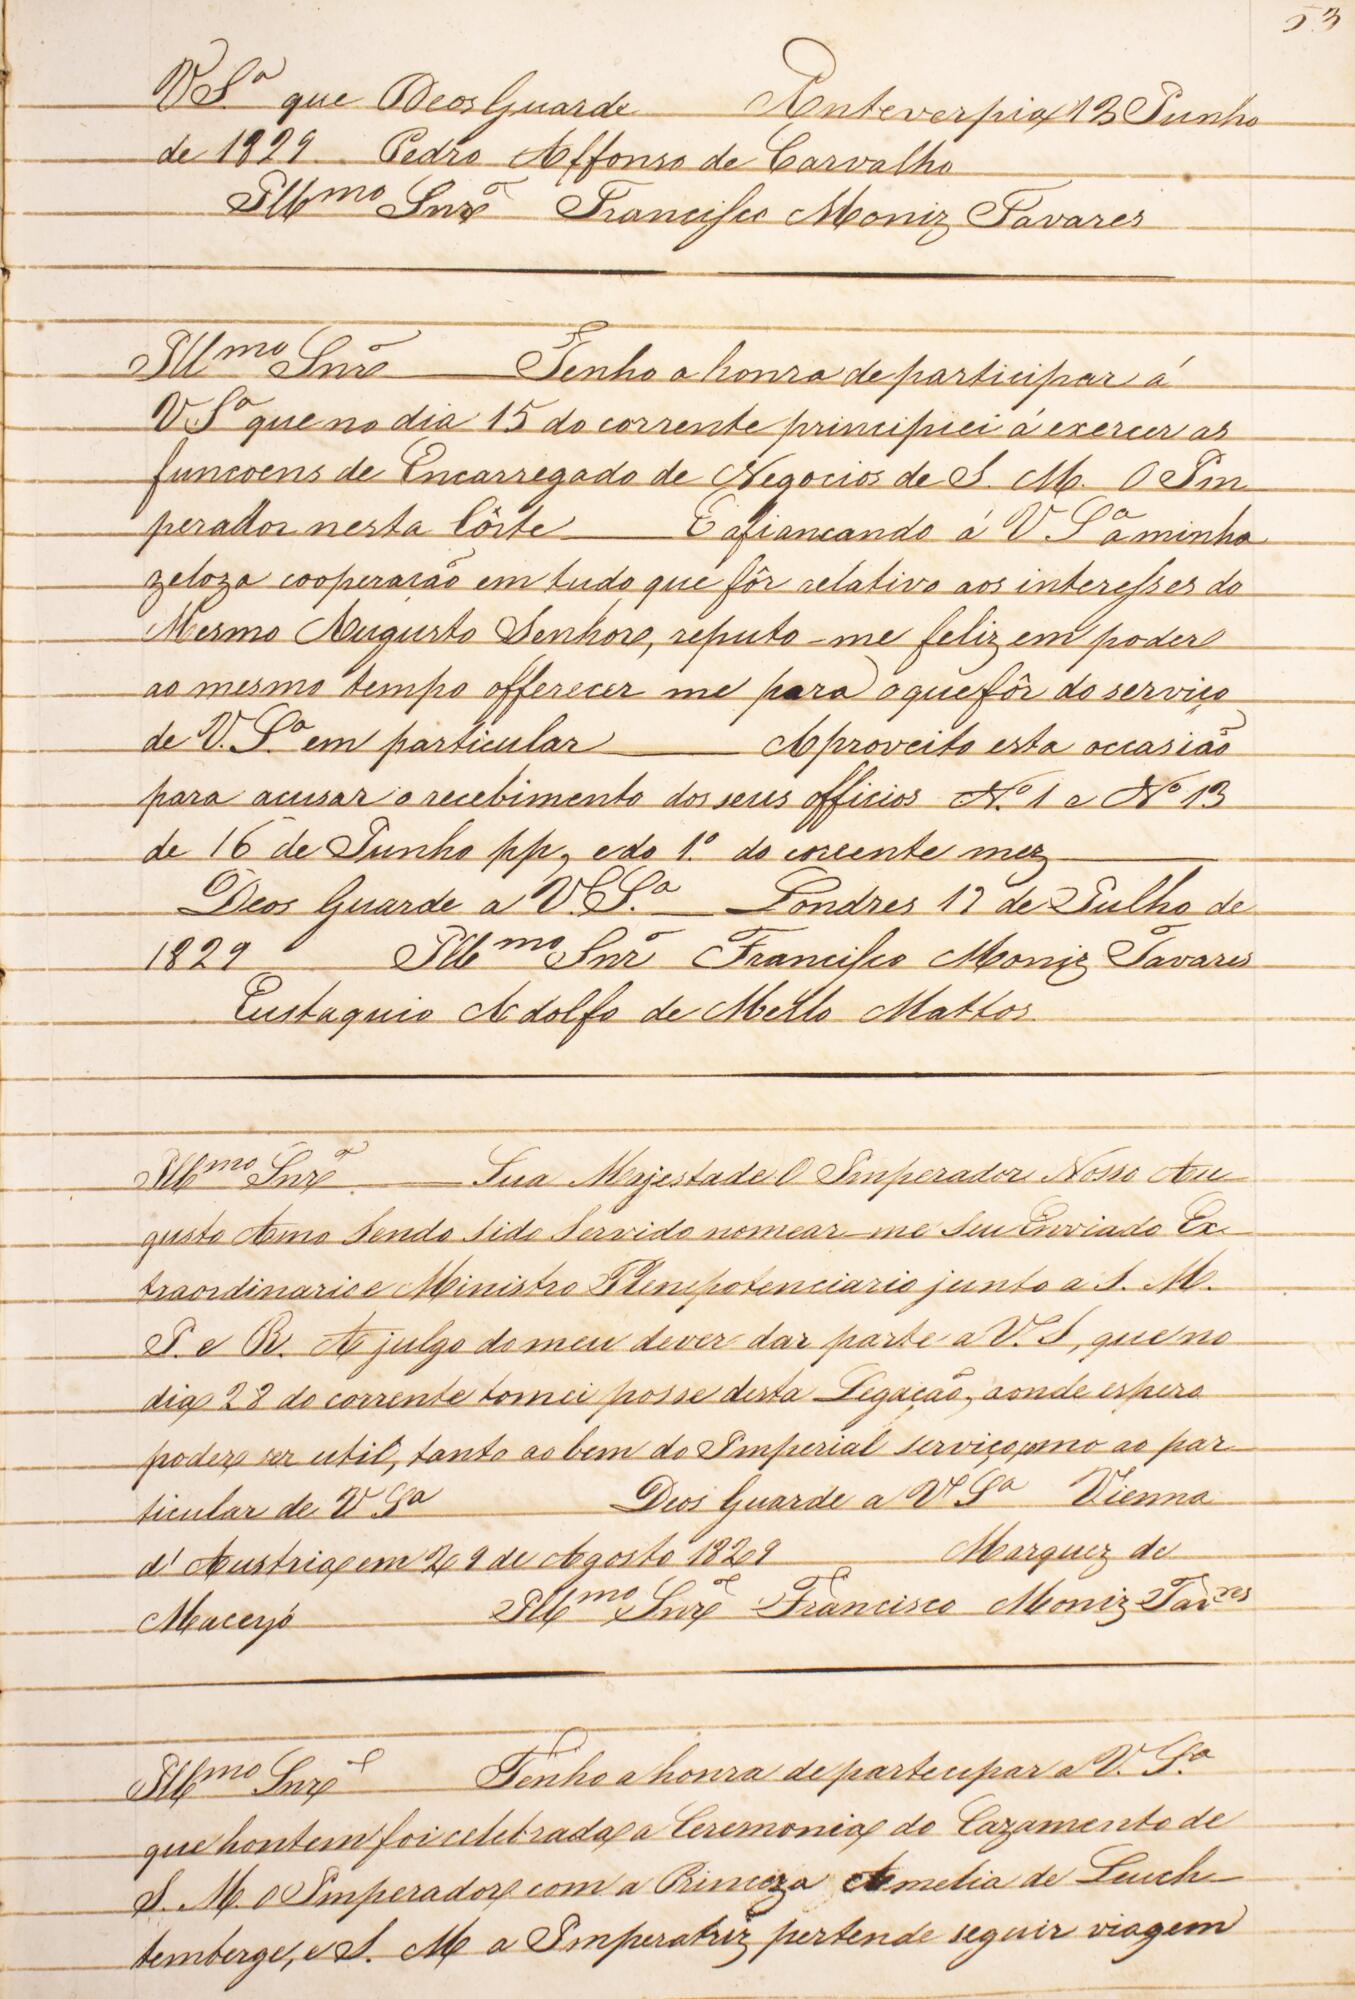 53
V S.ª que Deos Guarde Anteverpia 13 Junho
de 1829. Pedro Affonso de Carvalho
Illmo Snr. Francisco Moniz Tavares
Illmo Snr. Tenho a honra de participar á
V Sª que no dia 15 do corrente principiei á exercer as
funcoens de Encarregado de Negocios de S. M. O Im
perador nesta Côrte E afiancando á V. Sª a minha
zeloza cooperacão em tudo que fôr relativo aos interesses do
Mesmo Augusto Senhor, reputo-me feliz em poder
ao mesmo tempo offerecer me para o que fôr do serviço
de V. S.ª em particular Aproveito esta occasião
para acusar o recebimento dos seus officios Nº 1 e Nº 13
de 16 de Junho pp, e do 1.º do corrente mez
Deos Guarde a V. S.ª Londres 17 de Julho de
1829 Illmo Snr Francisco Moniz Tavares
Eustaquio Adolfo de Mello Mattos
Illmo Snr. Sua Majestade O Imperador Nosso Au
gusto Amo Sendo sido Servido nomear-me Seu Enviado Ex-
traordinario e Ministro Plenepotenciario junto a S. M.
I. e R. A julgo do meu dever dar parte a V. S, que no
dia 28 do corrente tomei posse desta Legação, aonde espero
poder ser util, tanto ao bem do Imperial serviço, como ao par
ticular de V Sª Deos Guarde a V Sª Vienna
d' Austria em 29 de Agosto 1829 Marquez de
Maceyó Illmo Snr. Francisco Moniz Tavres
Illmo Snr. Tenho a honra de partecipar a V. Sª
que hontem foi celebrada a Ceremonia do Cazamento de
S. M. O Imperador com a Rinceza Amelia de Leuch
temberge, e S. M a Imperatriz pertende seguir viagem